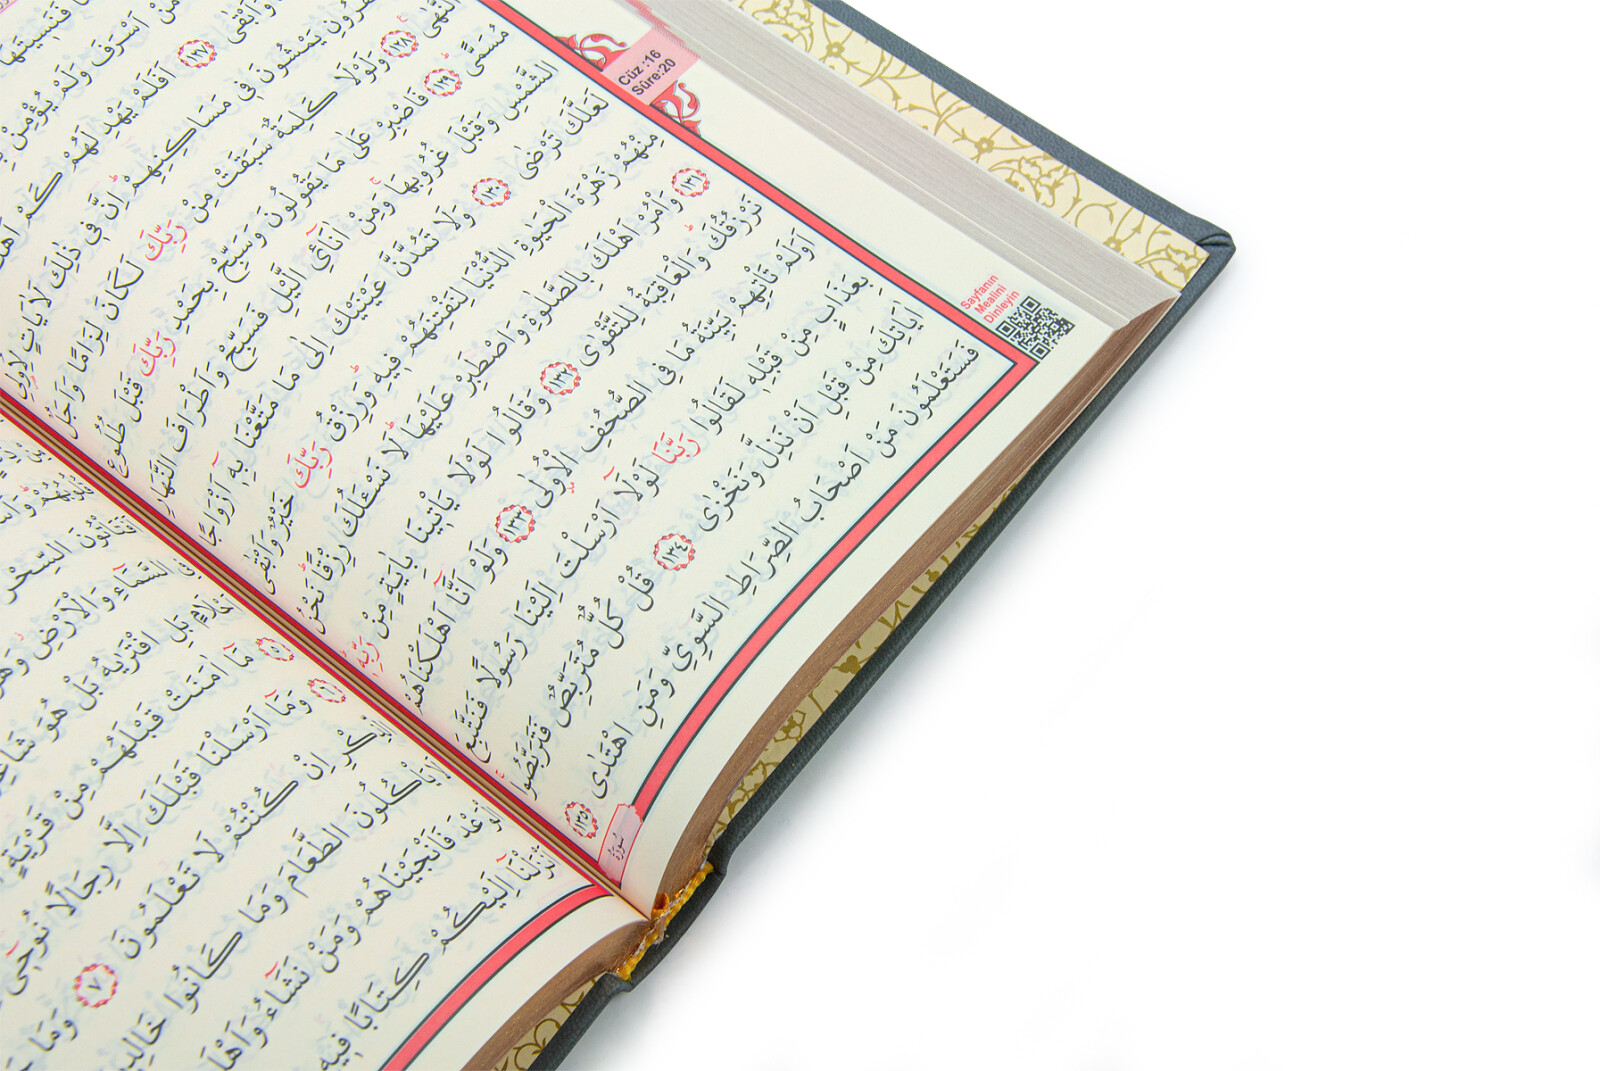 Cüz :16
Sûre:20
فَنَسِيتَهَا
مَنْ اَسْرَفَ وَلَمْ يُؤْمِنْ
وَاَبْقٰى ﴿١٢٧﴾ اَفَلَمْ يَهْدِ لَهُمْ كَمْ
يَمْشُونَ فِى مَسَاكِنِهِمْ اِنَّ فِى ذٰلِكَ لَاٰيَاتٍ لِاُولِى
النُّهٰى ﴿١٢٨﴾ وَلَوْلَا كَلِمَةٌ سَبَقَتْ مِنْ رَبِّكَ لَكَانَ لِزَامًا وَاَجَلٌ
مُسَمًّى ﴿١٢٩﴾ فَاصْبِرْ عَلٰى مَا يَقُولُونَ وَسَبِّحْ بِحَمْدِ رَبِّكَ قَبْلَ طُلُوعِ
الشَّمْسِ وَقَبْلَ غُرُوبِهَا وَمِنْ اٰنَٓائِ الَّيْلِ فَسَبِّحْ وَاَطْرَافَ النَّهَارِ
لَعَلَّكَ تَرْضٰى ﴿١٣٠﴾ وَلَا تَمُدَّنَّ عَيْنَيْكَ اِلٰى مَا مَتَّعْنَا بِهٖٓ اَزْوَاجًا
مِنْهُمْ زَهْرَةَ الْحَيٰوةِ الدُّنْيَا لِنَفْتِنَهُمْ فِيهِ وَرِزْقُ رَبِّكَ خَيْرٌ وَاَبْقٰى
﴿١٣١﴾ وَاْمُرْ اَهْلَكَ بِالصَّلٰوةِ وَاصْطَبِرْ عَلَيْهَا لَا نَسْـَٔلُكَ رِزْقًا نَحْنُ
نَرْزُقُكَ وَالْعَاقِبَةُ لِلتَّقْوٰى ﴿١٣٢﴾ وَقَالُوا لَوْلَا يَاْتِينَا بِاٰيَةٍ مِنْ رَبِّهٖ
اَوَلَمْ تَاْتِهِمْ بَيِّنَةُ مَا فِى الصُّحُفِ الْاُولٰى ﴿١٣٣﴾ وَلَوْ اَنَّٓا اَهْلَكْنَاهُمْ
بِعَذَابٍ مِنْ قَبْلِهٖ لَقَالُوا رَبَّنَا لَوْلَٓا اَرْسَلْتَ اِلَيْنَا رَسُولًا فَنَتَّبِعَ
اٰيَاتِكَ مِنْ قَبْلِ اَنْ نَذِلَّ وَنَخْزٰى ﴿١٣٤﴾ قُلْ كُلٌّ مُتَرَبِّصٌ فَتَرَبَّصُوا
فَسَتَعْلَمُونَ مَنْ اَصْحَابُ الصِّرَاطِ السَّوِىِّ وَمَنِ اهْتَدٰى ﴿١٣٥﴾
سُورَةُ
Sayfanın
Mealini
Dinleyin
اَفَتَاْتُونَ السِّحْرَ
السَّمَٓاءِ وَالْاَرْضِ وَهُوَ
اَحْلَامٍ بَلِ افْتَرٰيهُ بَلْ هُوَ شَاعِرٌ
﴿٥﴾ مَٓا اٰمَنَتْ قَبْلَهُمْ مِنْ قَرْيَةٍ
﴿٦﴾ وَمَٓا اَرْسَلْنَا قَبْلَكَ اِلَّا رِجَالًا نُوحٖٓى
الذِّكْرِ اِنْ كُنْتُمْ لَا تَعْلَمُونَ ﴿٧﴾ وَمَا
لَا يَاْكُلُونَ الطَّعَامَ وَمَا كَانُوا خَالِدٖينَ
الْوَعْدَ فَاَنْجَيْنَاهُمْ وَمَنْ نَشَٓاءُ وَاَهْلَ
اَنْزَلْنَٓا اِلَيْكُمْ كِتَابًا فٖيهِ